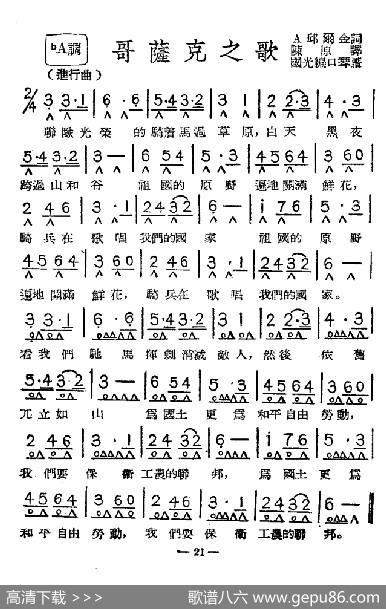 ᵇA調
哥薩克之歌
A 邱爾金詞
陳原譯
國光編口琴譜
(進行曲)
2/4 3 3·1 | 6·6 | 5·4 3·2 | 3·1 | 2 2·3
聯隊光榮 的騎着馬過草原，白天 黑夜
5·4 3·2 | 3 — | 6 54 | 5·3 | 4564 | 3 60
跨過山和谷 祖國的原野 遍地開滿 鮮花，
2 46 | 3·1 | 2432 | 6 — | i 76 | 5·3
騎兵在歌唱我們的國家 祖國的原野
4564 | 3 60 | 2 46 | 3·1 | 2432 | 6 —
遍地開滿 鮮花，騎兵在歌唱我們的國家。
3 3·1 | 6·6 | 5·4 3·2 | 3·1 | 2 2·3
看我們馳馬揮劍消滅敵人，然後 依舊
5·4 32 | 3 — | 6 54 | 5·3 | 4564 | 3 60
兀立如山 爲國土更爲和平自由勞動，
2 46 | 3·1 | 2432 | 6 — | i 76 | 5·3
我們要保衛工農的聯邦，爲國土更爲
4564 | 3 60 | 2 46 | 3·1 | 2432 | 6 —
和平自由勞動，我們要保衛工農的聯邦。
— 21 —
高清下载 >>> 歌谱八六 www.gepu86.com